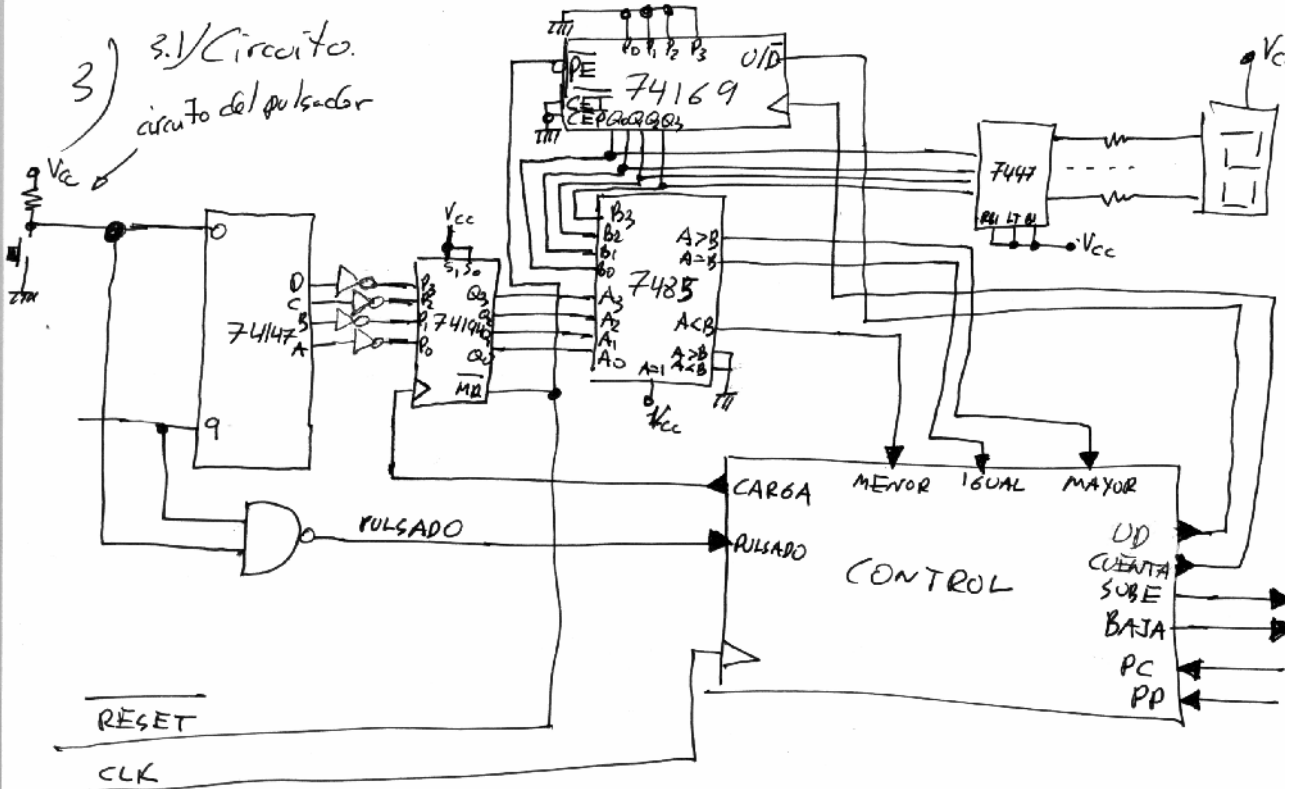 3) 3.1/ Circuito.
circuito del pulsador
Vcc
0
74147
D
C
B
A
9
Vcc
S1 S0
P3
P2
P1
P0
74194
Q3
Q2
Q1
Q0
MR
P0 P1 P2 P3
PE
U/D
74169
CET
CEP Q0 Q1 Q2 Q3
B3
B2
B1
B0
A3
A2
A1
A0
7485
A>B
A=B
A<B
A>B
A<B
Vcc
7447
RBI LT BI
Vcc
Vc
PULSADO
CARGA
PULSADO
MENOR IGUAL MAYOR
CONTROL
UD
CUENTA
SUBE
BAJA
PC
PP
RESET
CLK